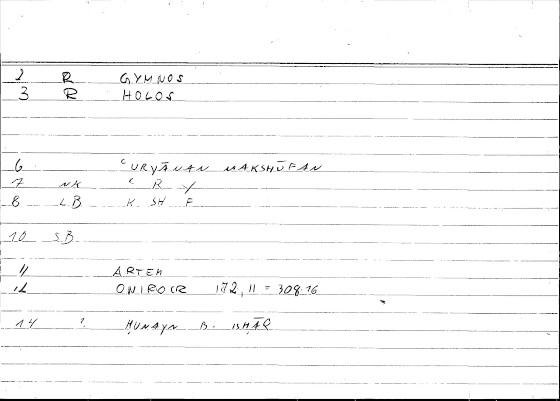 2 R GYMNOS
3 R HOLOS
6 ʿURYĀNAN MAKSHŪFAN
7 NK ʿ R Y
8 LB K SH F
10 SB
11 ARTEM
12 ONIROCR 172,11 = 308.16
14 ? ḤUNAYN B. ISḤĀQ